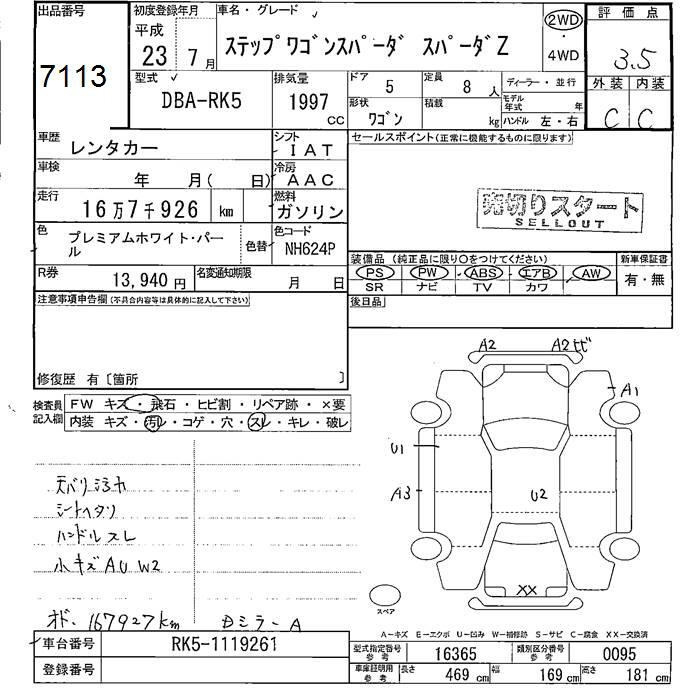 出品番号
7113
初度登録年月
平成
23年 7月
車名・グレード
ステップワゴンスパーダ スパーダZ
2WD
・
4WD
評価点
3.5
外装 内装
C C
型式
DBA-RK5
排気量
1997 CC
ドア 5
定員 8人
ディーラー・並行
形状
ワゴン
積載 kg
モデル年式 年
ハンドル 左・右
車歴
レンタカー
シフト
IAT
車検
年 月( 日)
冷房
AAC
走行
16万7千926 km
燃料
ガソリン
色
プレミアムホワイト・パール
色替
色コード
NH624P
R券
13,940円
名変通知期限
月 日
セールスポイント(正常に機能するものに限ります)
売切りスタート
SELLOUT
装備品(純正品に限り○をつけてください)
PS PW ABS エアB AW
SR ナビ TV カワ
新車保証書
有・無
後日品
注意事項申告欄(不具合内容等は具体的に記入して下さい)
修復歴 有〔箇所 〕
検査員記入欄
FW キズ・飛石・ヒビ割・リペア跡・×要
内装 キズ・汚レ・コゲ・穴・スレ・キレ・破レ
天バリヨゴレ
シートヘタリ
ハンドルスレ
小キズAU W2
オド、167927km Dミラー A
A2 A2ヒビ
A1
U1
A3
U2
XX
スペア
A−キズ E−エクボ U−凹み W−補修跡 S−サビ C−腐食 XX−交換済
車台番号
RK5-1119261
登録番号
型式指定番号 参考
16365
類別区分番号 参考
0095
車庫証明用 参考
長さ 469 cm
幅 169 cm
高さ 181 cm